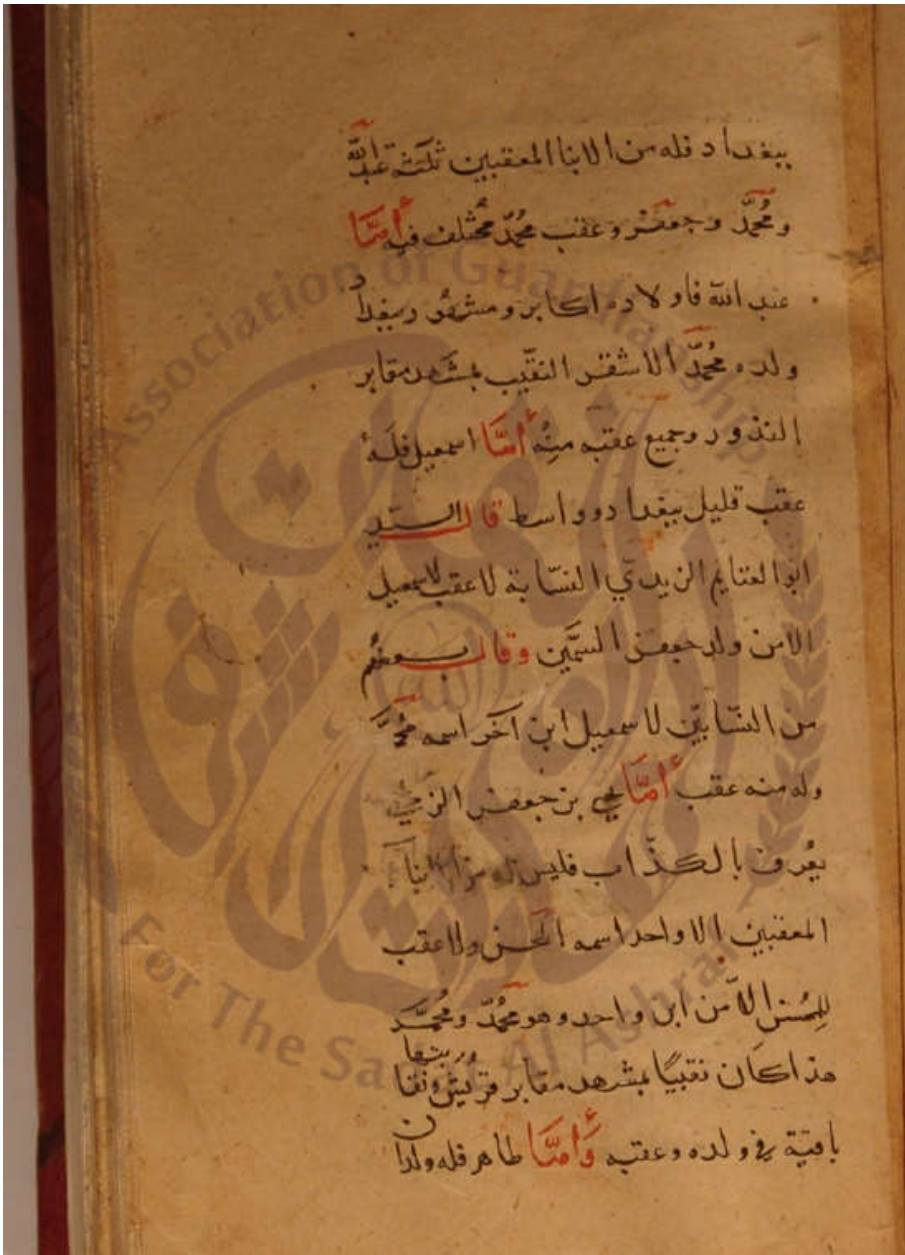 ببغداد فله من الابنا المعقبين ثلثة عبد الله
ومحمد وجعفر وعقب محمد مختلف فيه أما
عبد الله فاولاده اكابر ومشهور ببغداد
ولده محمد الاشقر النقيب بمشهد مقابر
النذور وجميع عقبه منه أما اسمعيل فله
عقب قليل ببغداد وواسط قال السيد
ابو الغنايم الزيدي النسابة لا عقب لاسمعيل
الا من ولد جعفر السمين وقال بعضهم
من النسابين لاسمعيل ابن آخر اسمه محمد
وله منه عقب أما يحي بن جعفر الزكي
يعرف بالكذاب فليس له من الابنا
المعقبين الا واحد اسمه الحسن ولا عقب
للحسن الا من ابن واحد وهو محمد ومحمد
هذا كان نقيبًا بمشهد مقابر قريش
باقية في ولده وعقبه وأما طاهر فله ولدان
Association of Guardianship
الله
For The Sadat Al Ashraf